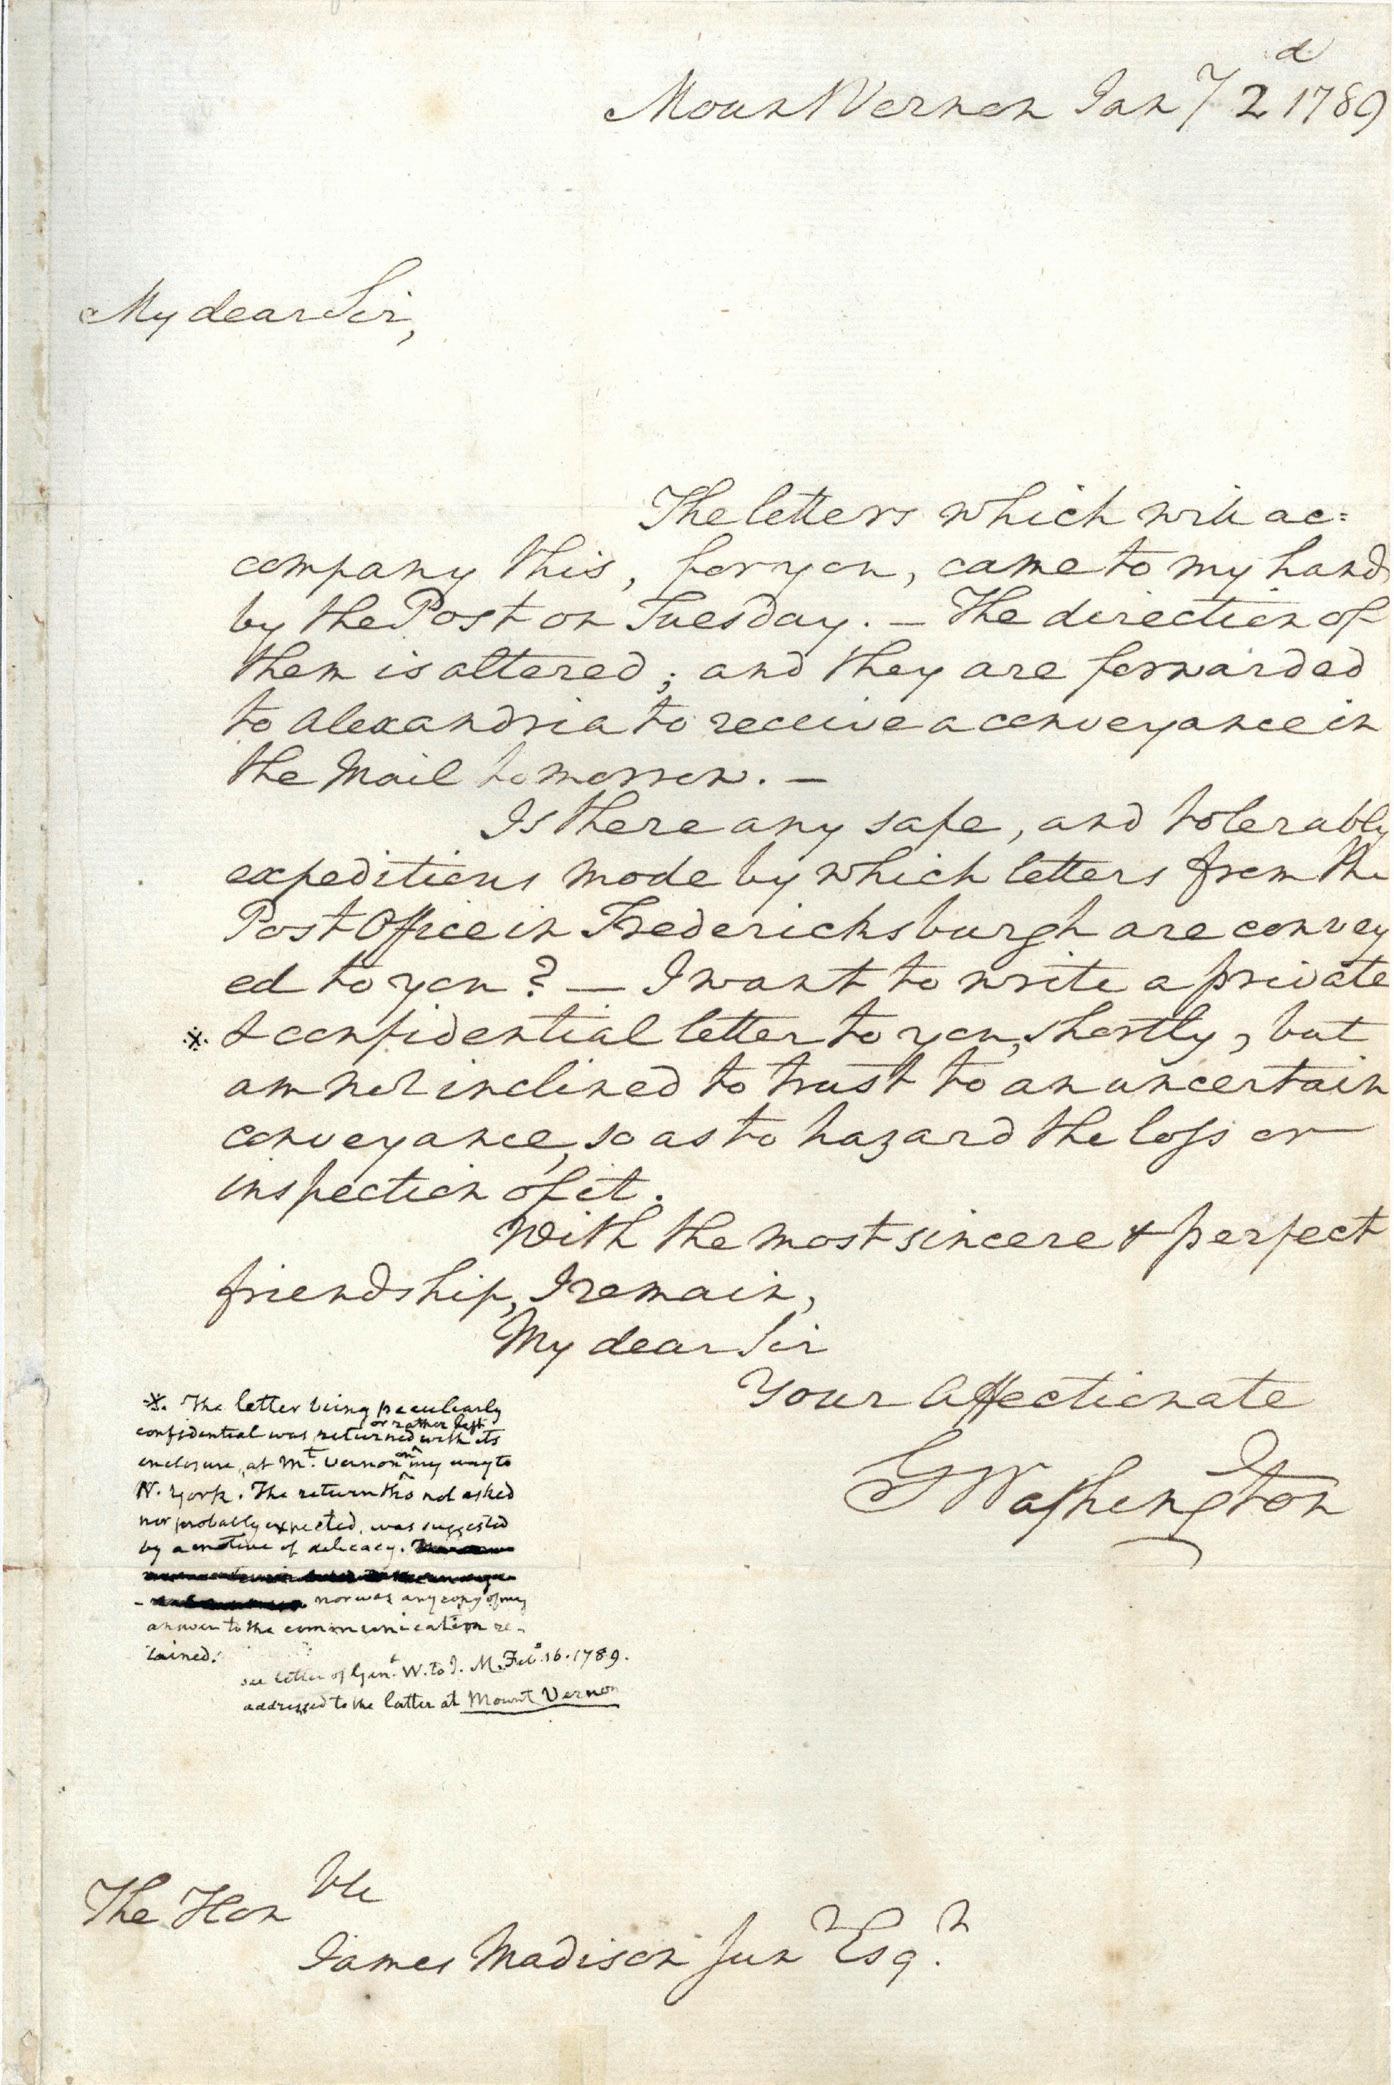 Mount Vernon Jany 2d 1789
My dear Sir,
The letters which will ac=
company this, for you, came to my hand
by the Post on Tuesday. — The direction of
them is altered; and they are forwarded
to Alexandria to receive a conveyance in
the Mail tomorrow. —
Is there any safe, and tolerably
expeditious mode by which letters from the
Post Office in Fredericksburgh are convey
ed to you? — I want to write a private
※ & confidential letter to you, shortly, but
am not inclined to trust to an uncertain
conveyance, so as to hazard the loss or
inspection of it.
With the most sincere & perfect
friendship, I remain,
My dear Sir
Your Affectionate
GWashington
※. The letter being peculiarly
or rather left
confidential was returned with its
enclosure, at Mt. Vernon on my way to
N. York. The return tho not asked
nor probably expected, was suggested
by a motive of delicacy.
nor was any copy of my
answer to the communication re-
tained.
see letter of Genl. W. to J. M. Feb. 16. 1789.
addressed to the latter at Mount Vernon
The Honble
James Madison Junr Esqr.